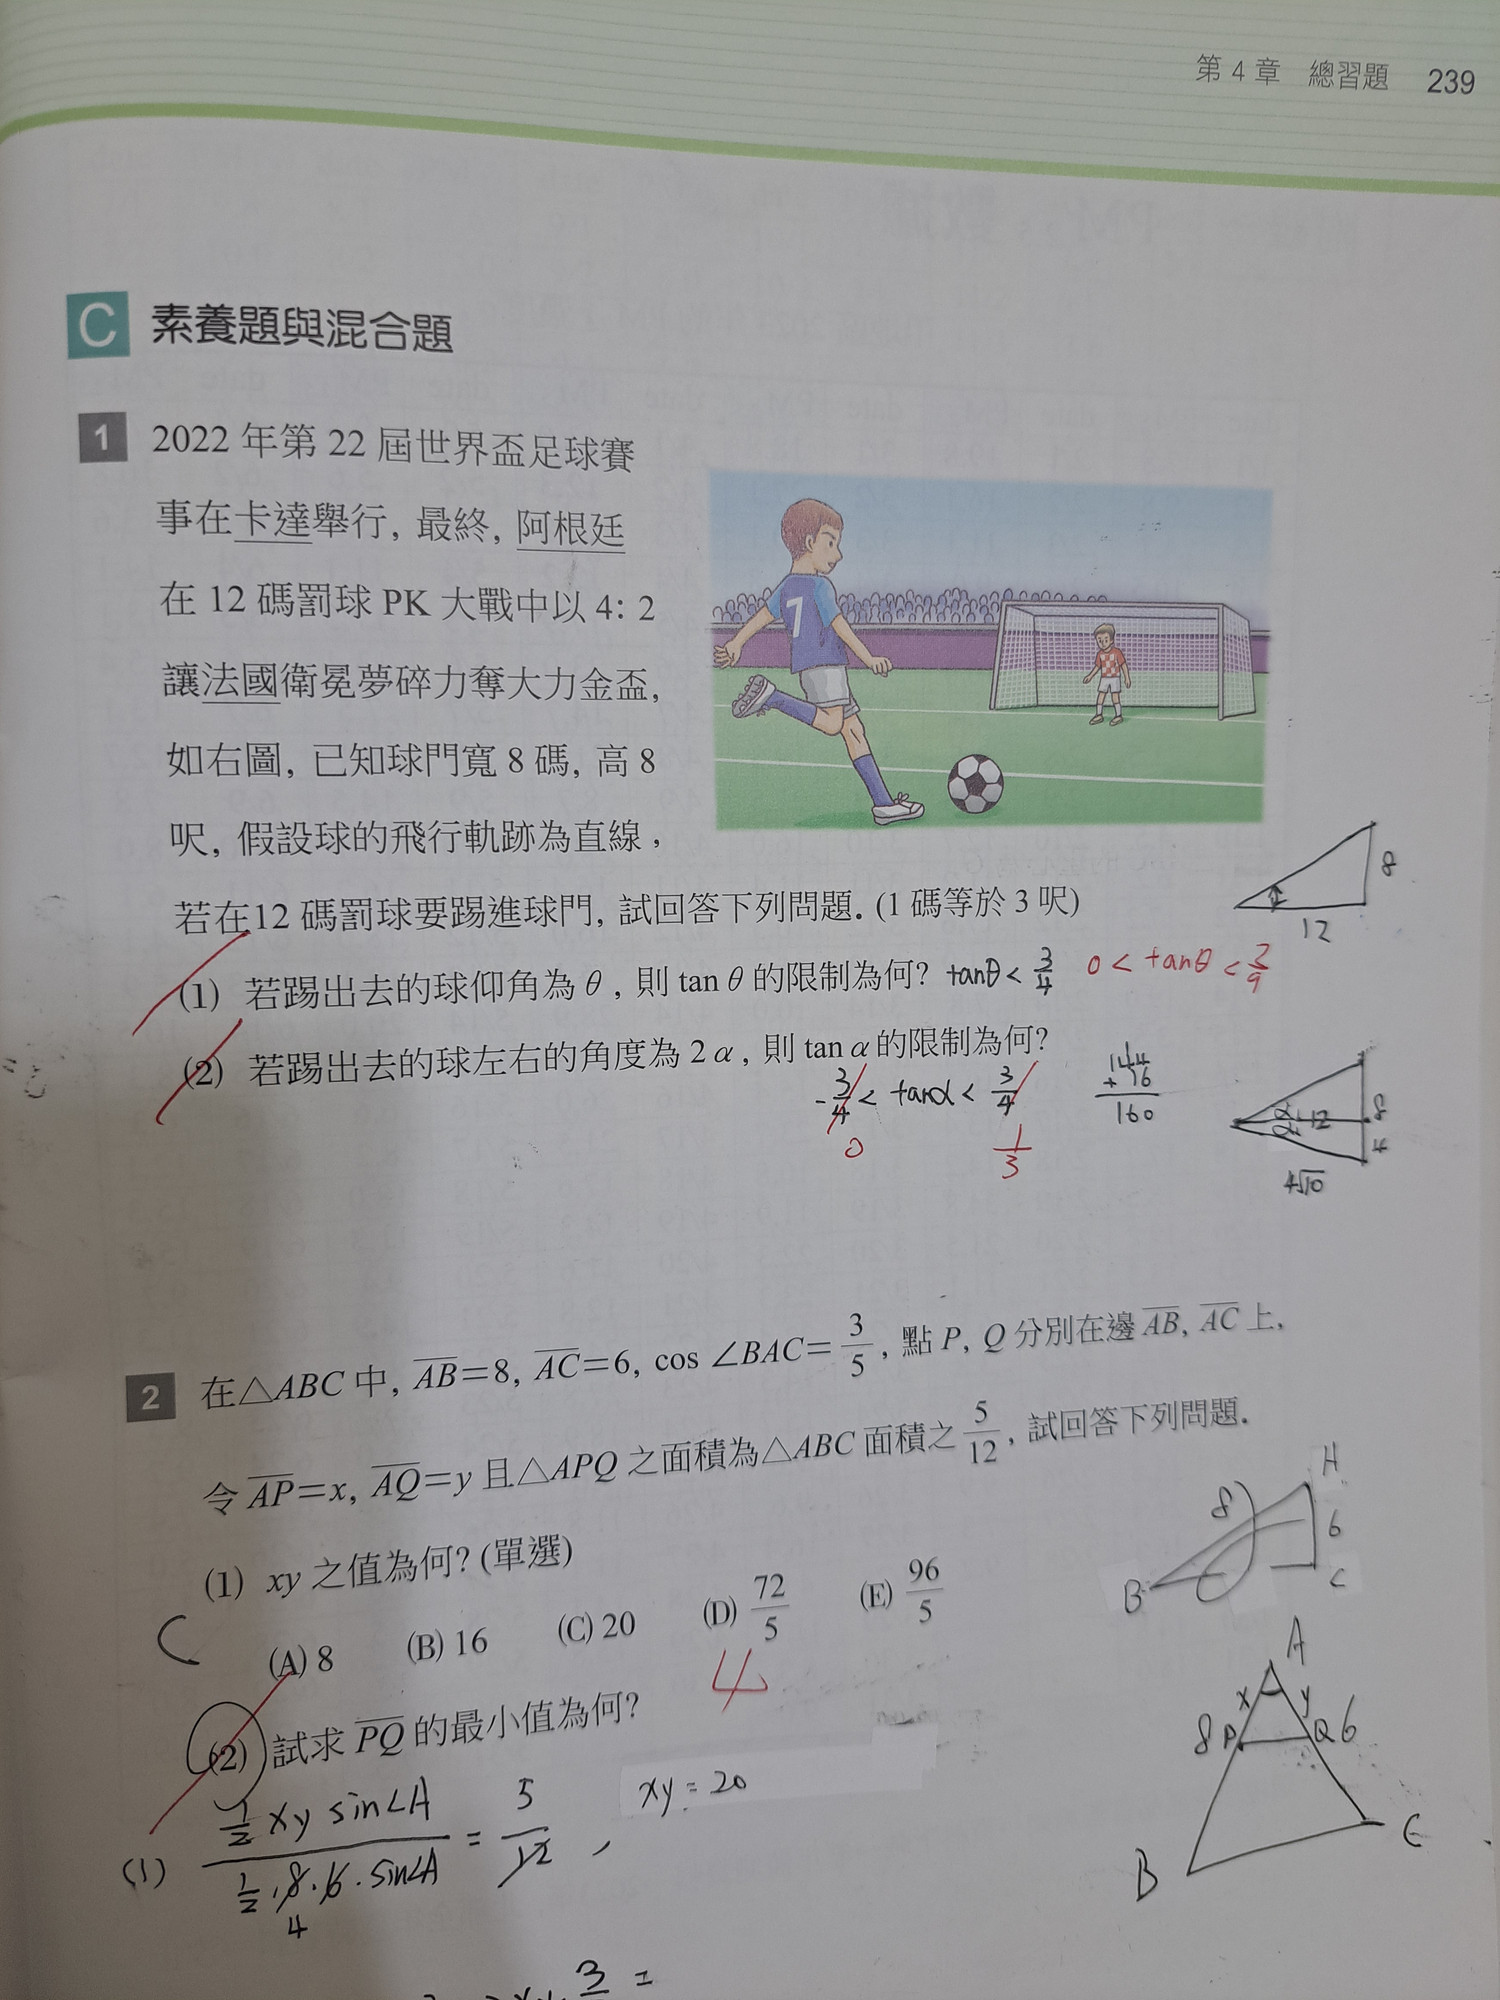 第 4 章 總習題 239
C 素養題與混合題
1 2022 年第 22 屆世界盃足球賽
事在卡達舉行, 最終, 阿根廷
在 12 碼罰球 PK 大戰中以 4: 2
讓法國衛冕夢碎力奪大力金盃,
如右圖, 已知球門寬 8 碼, 高 8
呎, 假設球的飛行軌跡為直線,
若在12 碼罰球要踢進球門, 試回答下列問題. (1 碼等於 3 呎)
7
8
12
(1) 若踢出去的球仰角為 θ, 則 tan θ 的限制為何? tanθ < 3/4 0 < tanθ < 2/9
(2) 若踢出去的球左右的角度為 2α, 則 tan α 的限制為何?
-3/4 < tanα < 3/4
0
1/3
144
+ 16
160
12
8
4
4√10
2 在△ABC 中, AB=8, AC=6, cos ∠BAC= 3/5, 點 P, Q 分別在邊 AB, AC 上,
令 AP=x, AQ=y 且△APQ 之面積為△ABC 面積之 5/12, 試回答下列問題.
(1) xy 之值為何? (單選)
C (A) 8 (B) 16 (C) 20 (D) 72/5 (E) 96/5
4
(2) 試求 PQ 的最小值為何?
H
8
6
B
C
A
x y
8 P Q 6
B C
(1) 1/2 xy sin∠A / 1/2·8·6·sin∠A = 5/12 , xy = 20
4
3 =